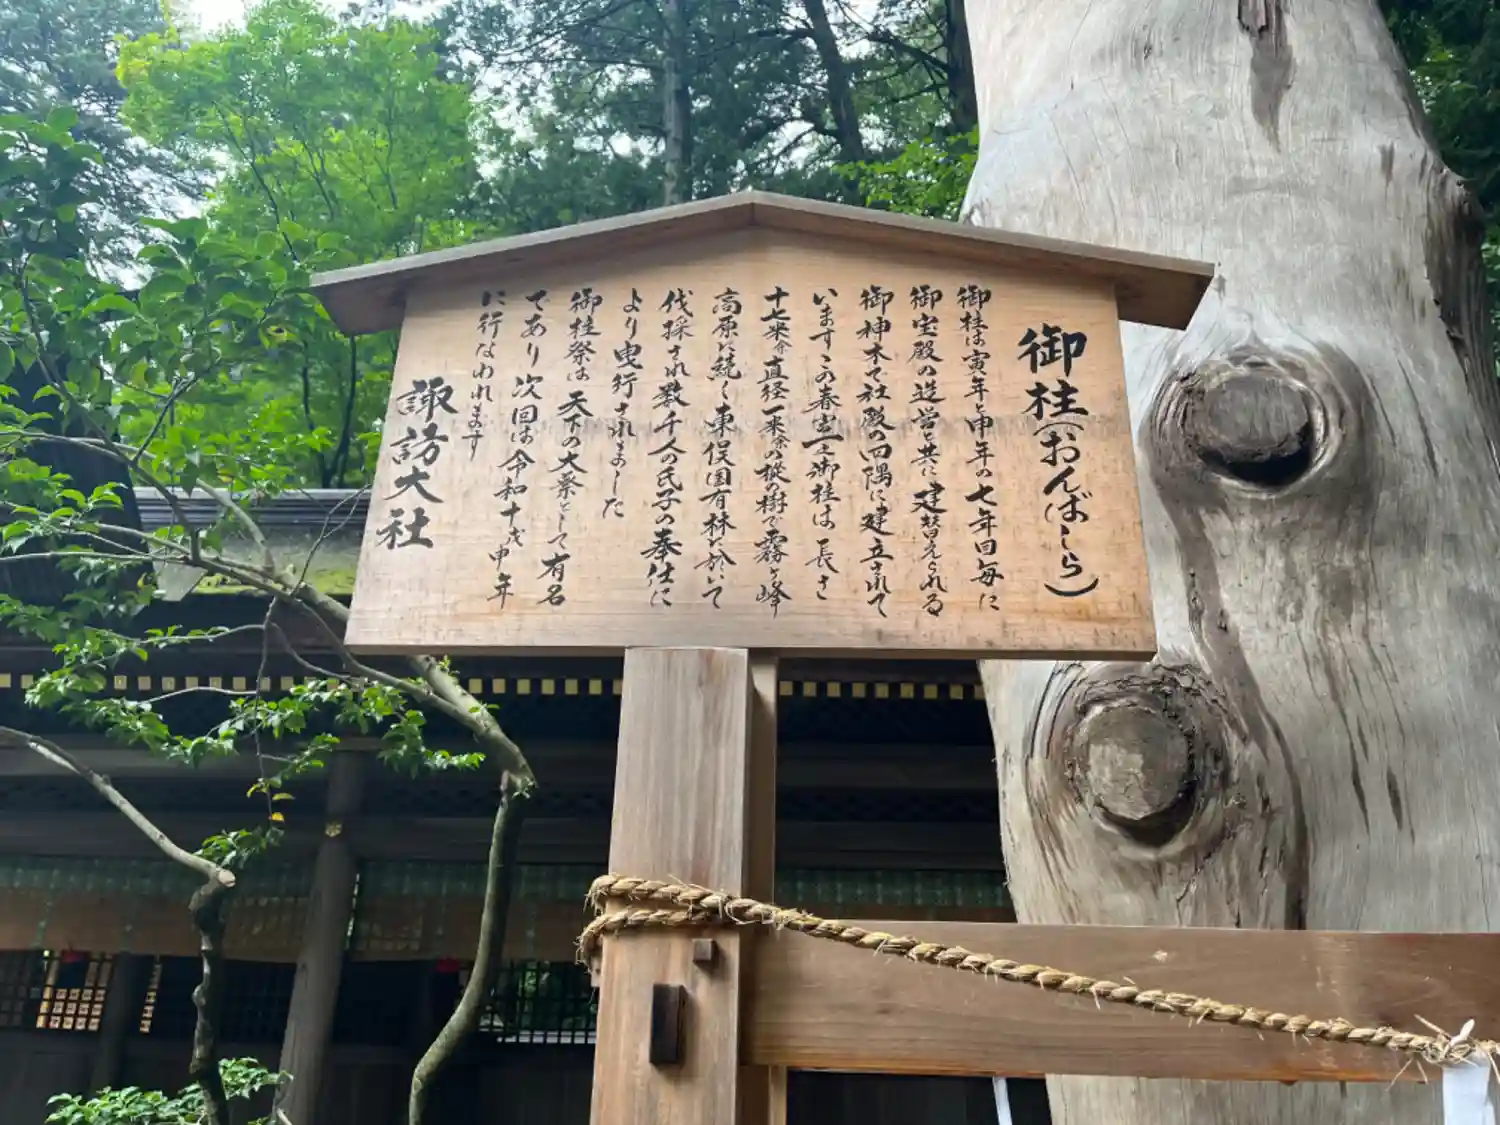 御柱(おんばしら)
御柱は寅年と申年の七年回毎に
御宝殿の造営と共に建替えられる
御神木で社殿の四隅に建立されて
いますこの春宮一之御柱は長さ
十七米余直径一米余の樅の樹で霧ヶ峰
高原に続く東俣国有林に於いて
伐採され数千人の氏子の奉仕に
より曳行されました
御柱祭は天下の大祭として有名
であり次回は令和十戊申年
に行なわれます
諏訪大社